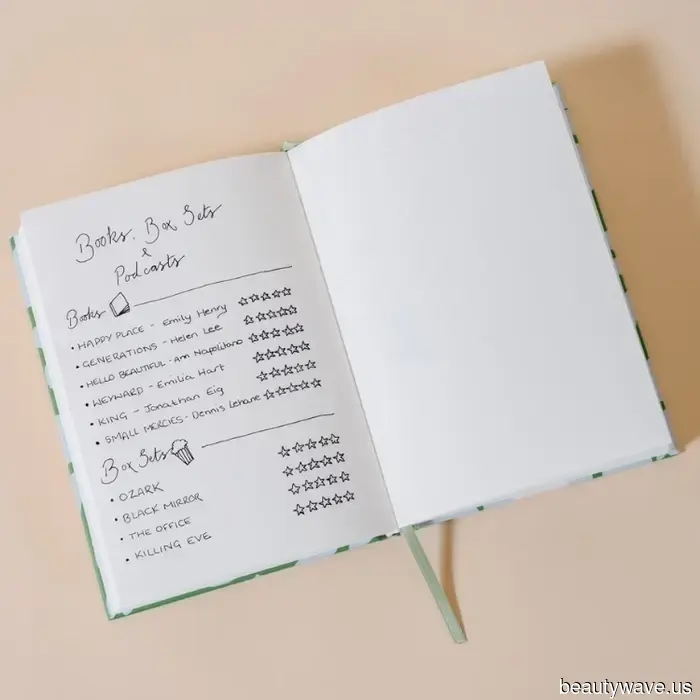 Books, Box Sets
&
Podcasts
Books
• HAPPY PLACE - Emily Henry ☆☆☆☆☆
• GENERATIONS - Helen Lee ☆☆☆☆☆
• HELLO BEAUTIFUL - Ann Napolitano ☆☆☆☆☆
• WEYWARD - Emilia Hart ☆☆☆☆☆
• KING - Jonathan Eig ☆☆☆☆☆
• SMALL MERCIES - Dennis Lehane ☆☆☆☆☆
Box Sets
• OZARK ☆☆☆☆☆
• BLACK MIRROR ☆☆☆☆☆
• THE OFFICE ☆☆☆☆☆
• KILLING EVE ☆☆☆☆☆
beautywave.us